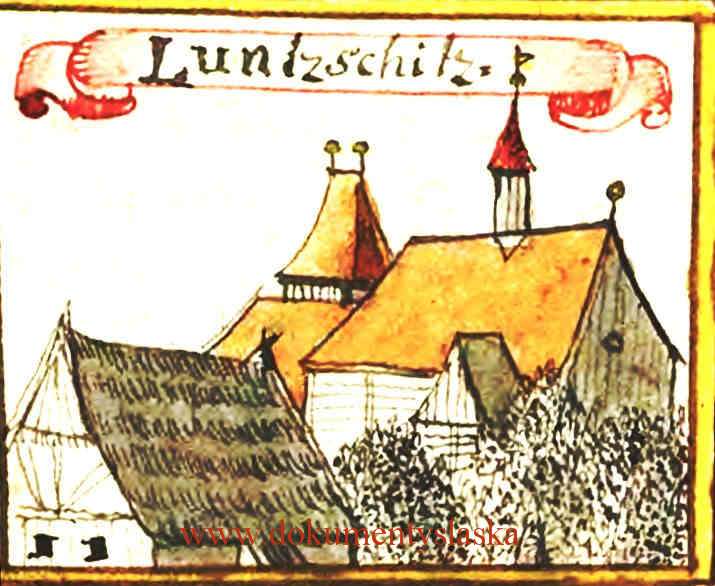 Luntzschitz.
www.dokumentyslaska